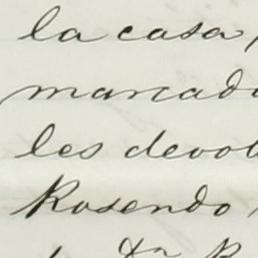 la casa
marcad
les devol
Rosendo